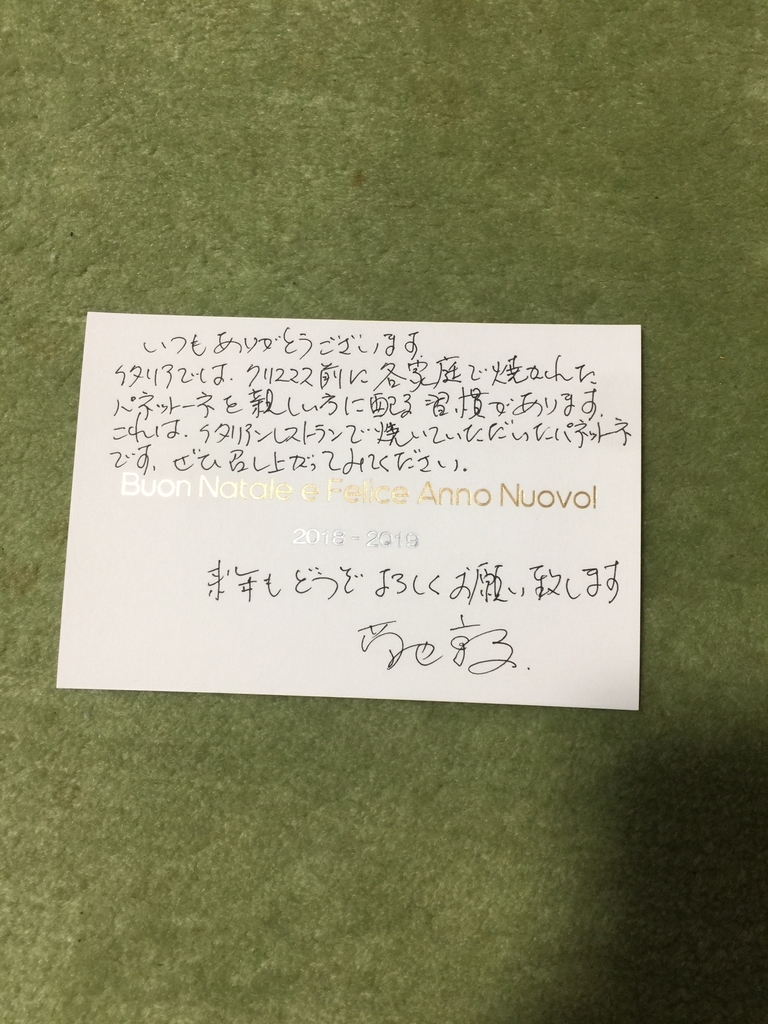 いつもありがとうございます
イタリアでは、クリスマス前に各家庭で焼かれた
パネットーネを親しい方に配る習慣があります。
これは、イタリアンレストランで焼いていただいたパネットーネ
です。ぜひ召し上がってみてください。
Buon Natale e Felice Anno Nuovo!
2018 - 2019
来年もどうぞよろしくお願い致します
菊池